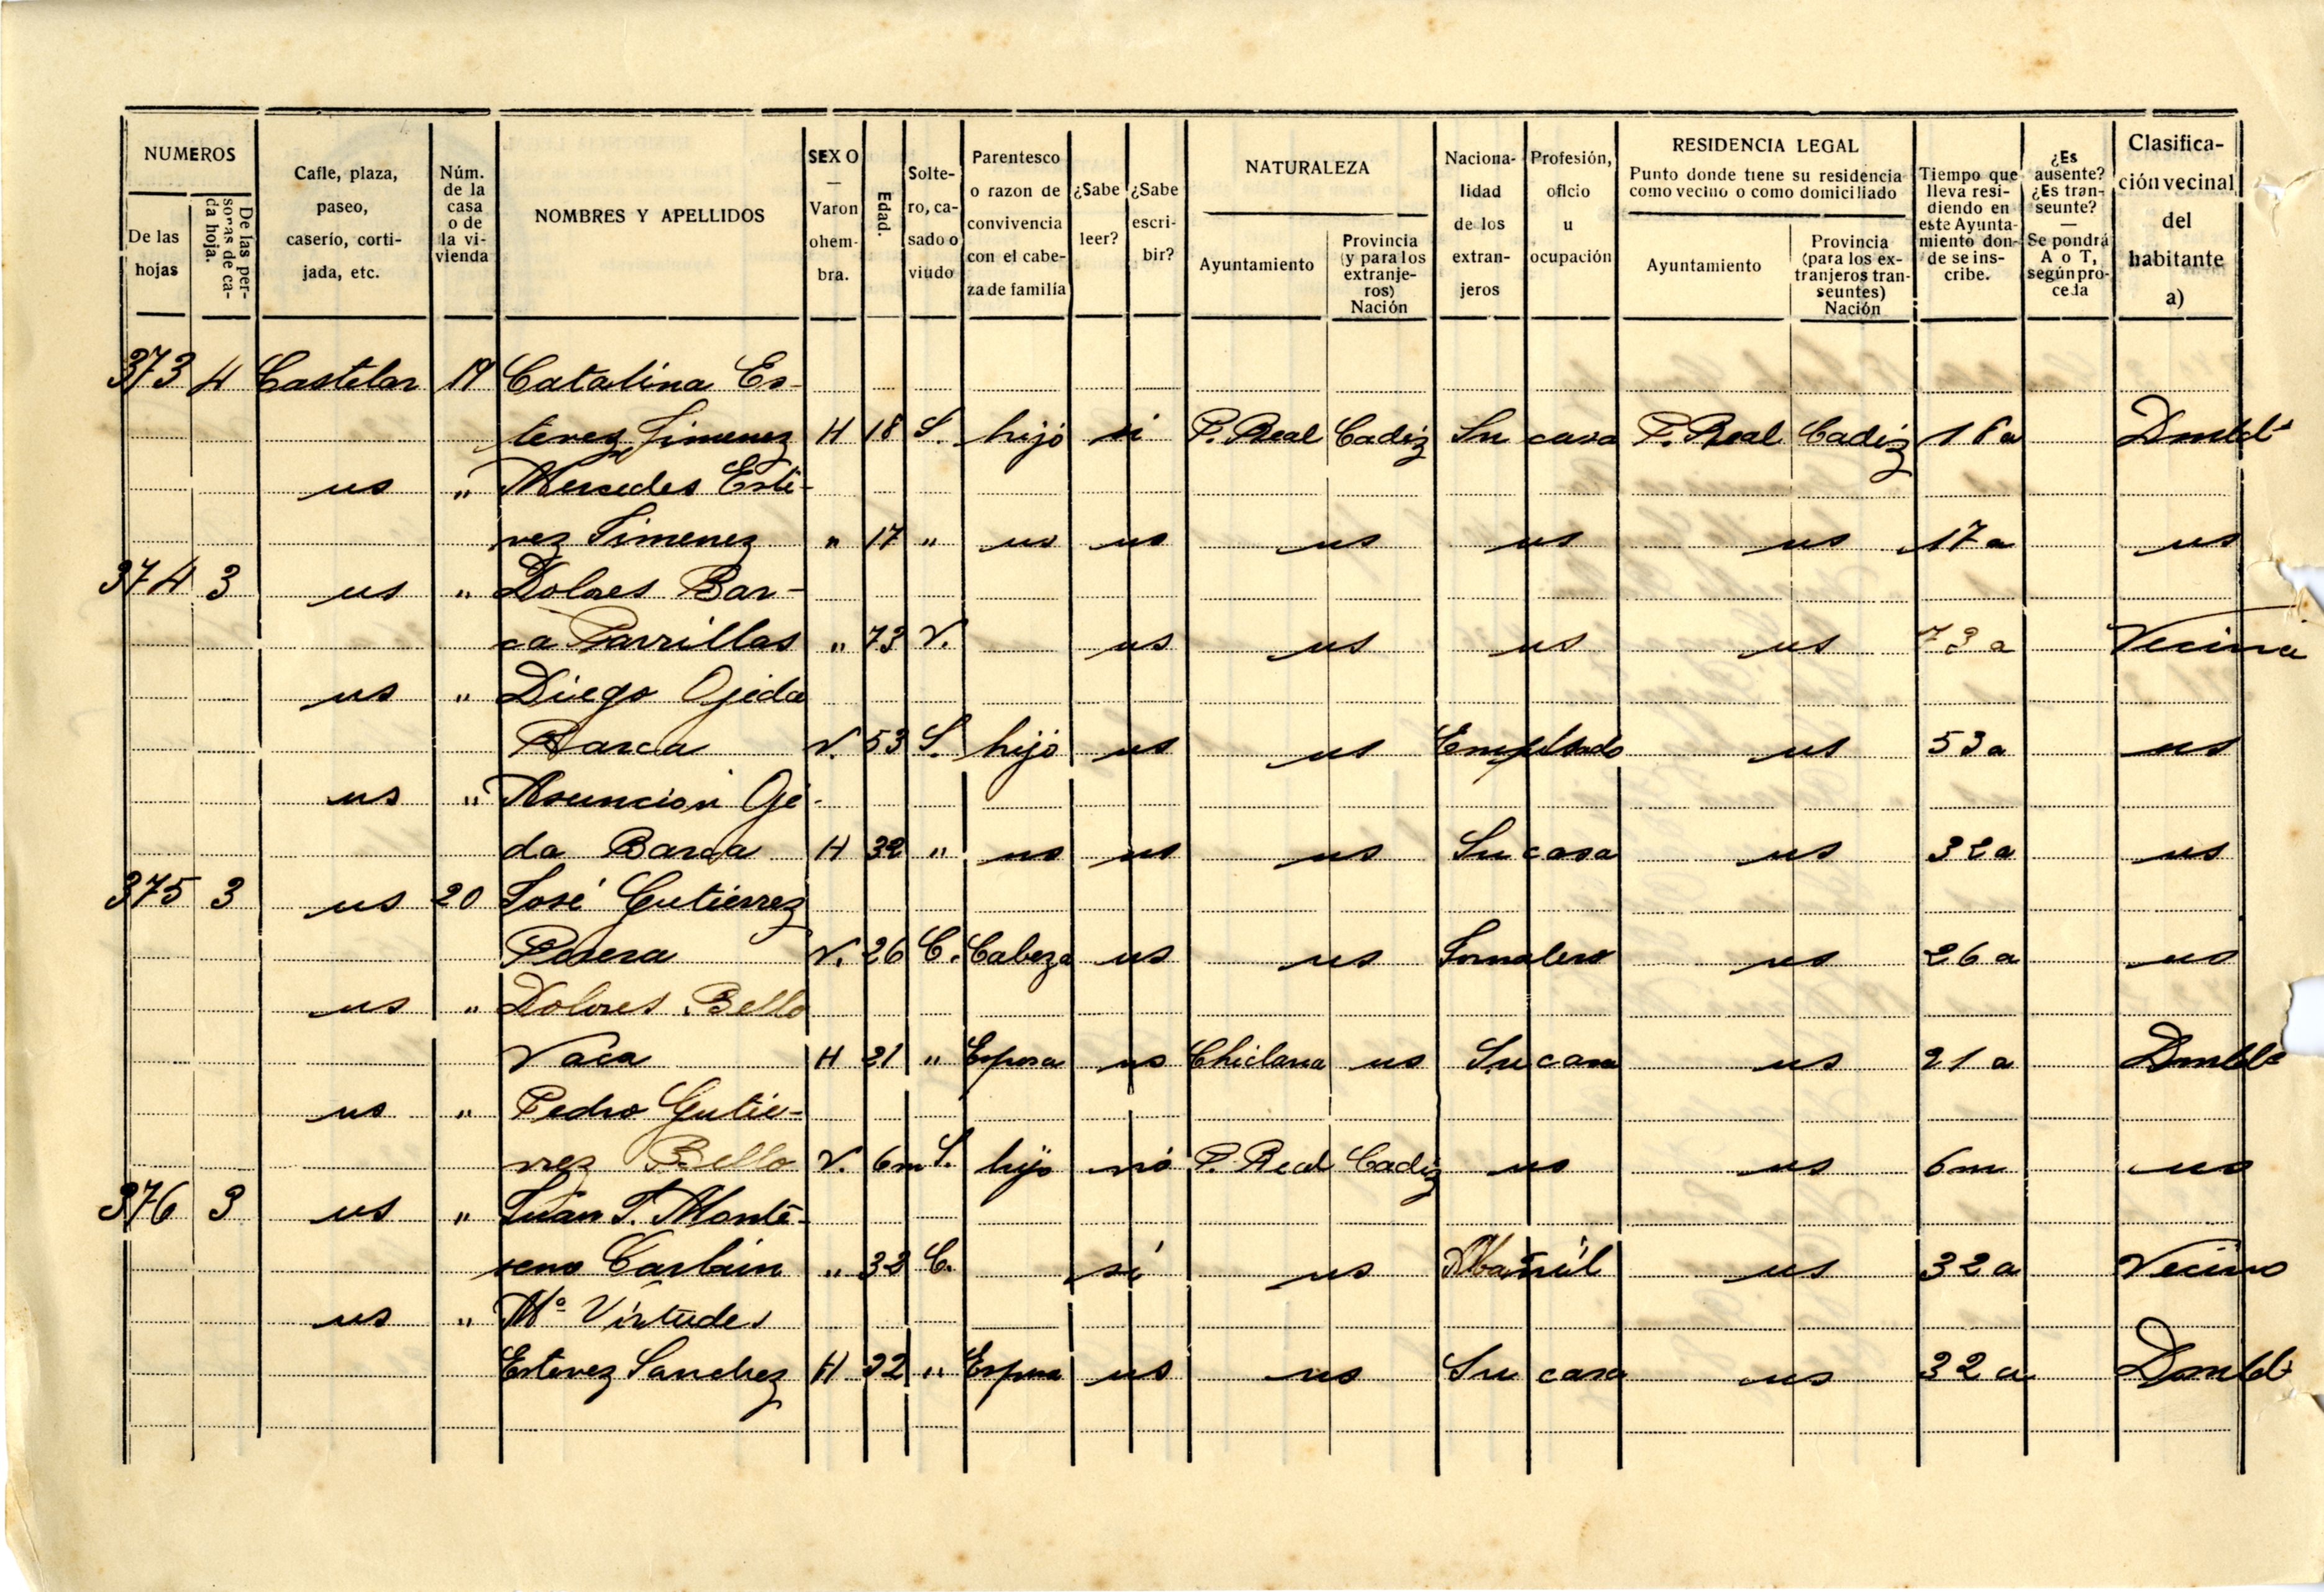 NUMEROS
De las hojas
De las personas de cada hoja.
Calle, plaza, paseo, caserío, cortijada, etc.
Núm. de la casa o de la vivienda
NOMBRES Y APELLIDOS
SEXO — Varon ohembra.
Edad.
Soltero, casado o viudo
Parentesco o razon de convivencia con el cabeza de familia
¿Sabe leer?
¿Sabe escribir?
NATURALEZA
Ayuntamiento
Provincia (y para los extranjeros) Nación
Nacionalidad de los extranjeros
Profesión, oficio u ocupación
RESIDENCIA LEGAL
Punto donde tiene su residencia como vecino o como domiciliado
Ayuntamiento
Provincia (para los extranjeros transeuntes) Nación
Tiempo que lleva residiendo en este Ayuntamiento donde se inscribe.
¿Es ausente? ¿Es transeunte? — Se pondrá A o T, según proceda
Clasificación vecinal del habitante a)
373 4 Castelar 19 Catalina Es-
tevez Jimenez H 18 S. hijo si P. Real Cadiz Su casa P. Real Cadiz 18 a Dmbd
us " Mercedes Esté-
vez Jimenez " 17 " us us us us us 17 a us
374 3 us " Dolores Bar-
ca Parrillas " 73 V. us us us us 73 a Vecina
us " Diego Ojeda
Barca V. 53 S. hijo us us Empleado us 53 a us
us " Asuncion Oje-
da Barca H 32 " us us us Su casa us 32 a us
375 3 us 20 José Gutiérrez
Perera V. 26 C. Cabeza us us Jornalero us 26 a us
us " Dolores Bello
Vaca H 21 " Esposa us Chiclana us Su casa us 21 a Dmbd
us " Pedro Gutié-
rrez Bello V. 6m S. hijo nó P. Real Cadiz us us 6m us
376 3 us " Juan J. Monte-
seno " 32 C. sí us Albañil us 32 a Vecino
us " Mª Virtudes
Estevez Sanchez H 32 " Esposa us us Su casa us 32 a Dmbd